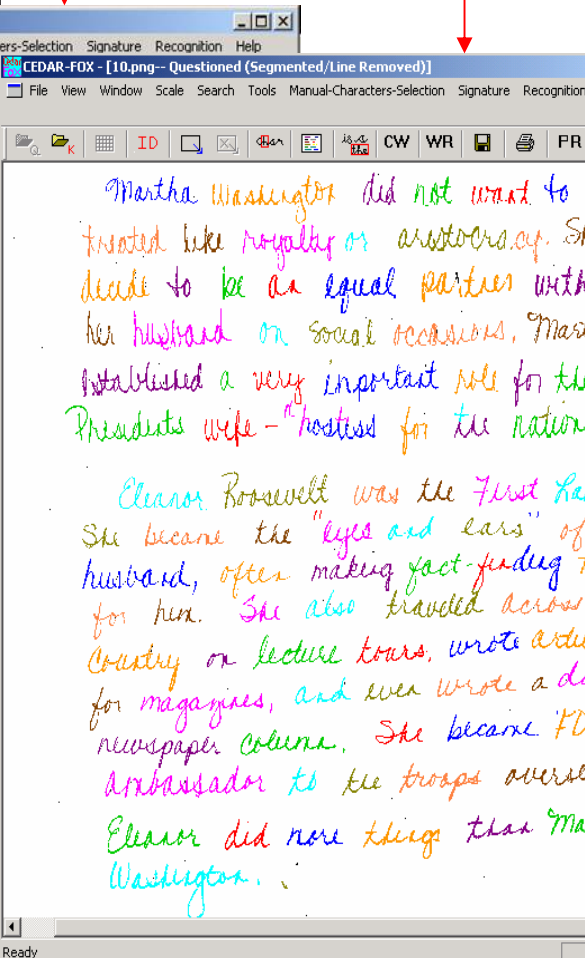 ers-Selection Signature Recognition Help
CEDAR-FOX - [10.png-- Questioned (Segmented/Line Removed)]
File View Window Scale Search Tools Manual-Characters-Selection Signature Recognition
Q K ID Char is a the CW WR PR
Martha Washington did not want to
treated like royalty or aristocra.cy. S
decide to be an equal partner with
her husband on social occasions. Mar
established a very important role for th
Presidents wife - "hostess for the nation
Eleanor Roosevelt was the First La
She became the "eyes and ears" of
husband, often making fact-finding
for him. She also traveled across
Country on lecture tours, wrote artic
for magazines, and even wrote a da
newspaper column. She became FD
ambassador to the troops overse
Eleanor did more things than Ma
Washington.
Ready